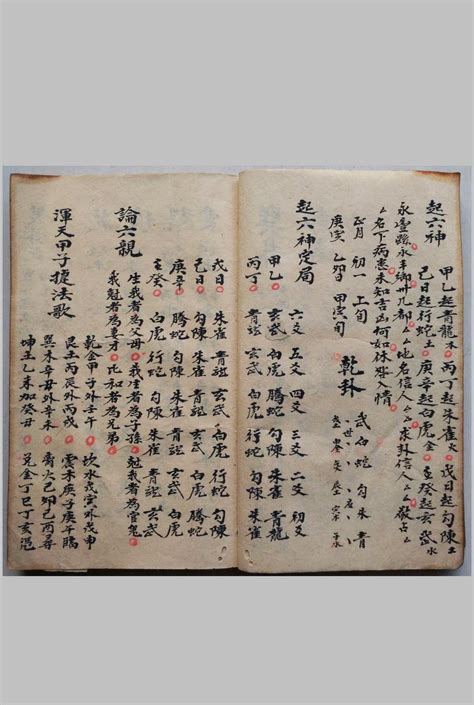 起六神
甲乙起青龍木 丙丁起朱雀火 戊日起勾陳土
己日起行蛇土 庚辛起白虎金 壬癸起玄武水
地名信人ムム求卦信人ムム敬占
ム名下病患未知吉凶何如休咎入情
正月 初一 上旬
庚寅 甲寅旬
乾卦
武白蛇勾朱青
起六神定局
六爻 五爻 四爻 三爻 二爻 初爻
甲乙 玄武 白虎 騰蛇 勾陳 朱雀 青龍
丙丁 青龍 玄武 白虎 行蛇 勾陳 朱雀
戊日 朱雀 青龍 玄武 白虎 行蛇 勾陳
己日 勾陳 朱雀 青龍 玄武 白虎 騰蛇
庚辛 騰蛇 勾陳 朱雀 青龍 玄武 白虎
壬癸 白虎 行蛇 勾陳 朱雀 青龍 玄武
論六親
生我者為父母 我生者為子孫 尅我者為官鬼
我尅者為妻才 比和者為兄弟
渾天甲子捷法歌
乾金甲子外壬午 坎水戊寅外戊申
艮土丙辰外丙戌 震木庚子庚午臨
巽木辛丑外辛未 离火己卯己酉尋
坤土乙未加癸丑 兌金丁巳丁亥憑